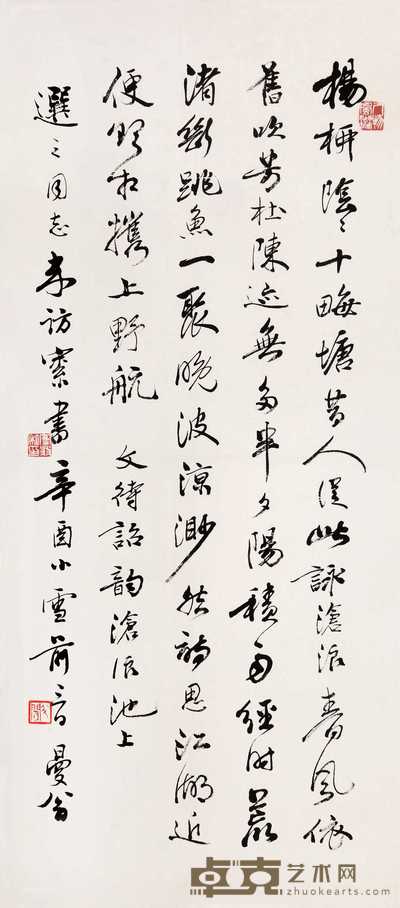 楊柳陰々十畮塘昔人從此詠滄浪春風依
舊吹芳杜陳迹無多半夕陽積雨經時荒
渚斷跳魚一聚晚波涼渺然詩思江湖近
便欲相攜上野航 文待詔韵滄浪池上
選之同志来訪索書 辛酉小雪前 曼翁
卓克艺术网
zhuokearts.com